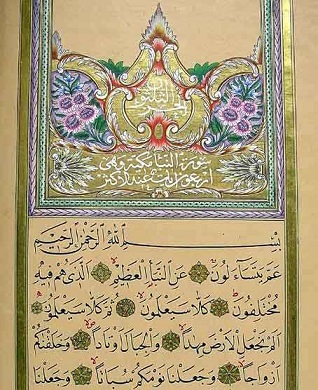 سورة النبأ مكية وهي
اربعون آية
بِسْمِ اللَّهِ الرَّحْمَٰنِ الرَّحِيمِ
عَمَّ يَتَسَاءَلُونَ عَنِ النَّبَإِ الْعَظِيمِ الَّذِي هُمْ فِيهِ
مُخْتَلِفُونَ كَلَّا سَيَعْلَمُونَ ثُمَّ كَلَّا سَيَعْلَمُونَ
أَلَمْ نَجْعَلِ الْأَرْضَ مِهَادًا وَالْجِبَالَ أَوْتَادًا وَخَلَقْنَاكُمْ
أَزْوَاجًا وَجَعَلْنَا نَوْمَكُمْ سُبَاتًا وَجَعَلْنَا